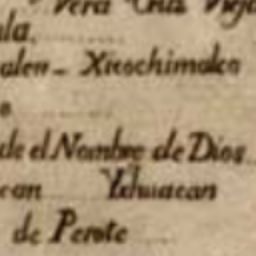 Vera Cruz Vieja
ala.
alen - Xicochimalco
o
de el Nombre de Dios
can Yxhuacan
de Perote